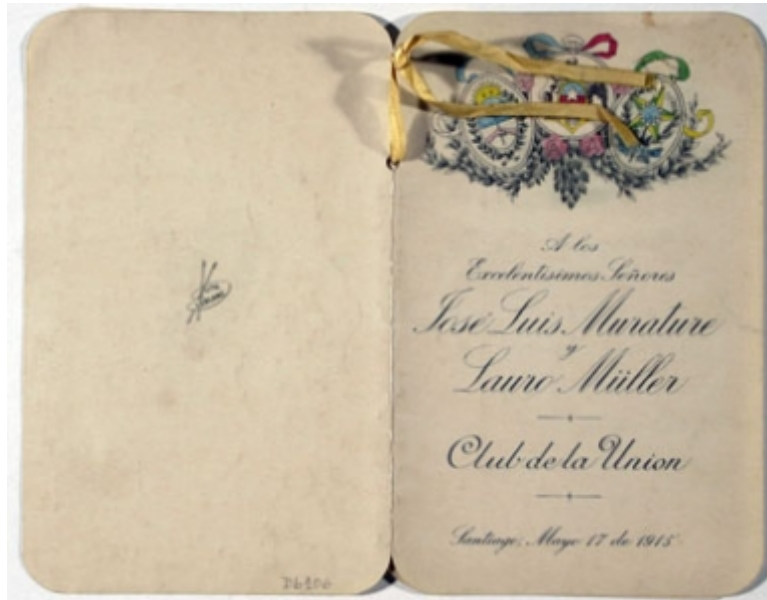 A los
Excelentísimos Señores
José Luis Murature
y
Lauro Müller
Club de la Union
Santiago, Mayo 17 de 1915